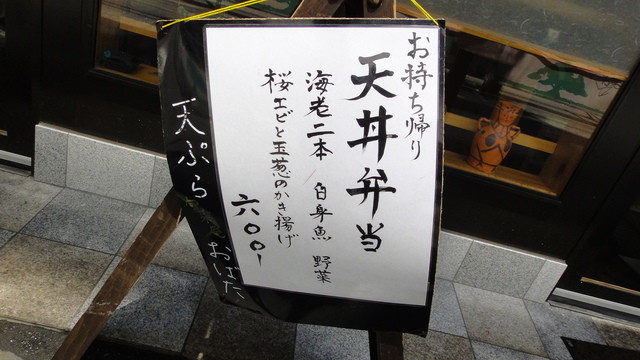 お持ち帰り
天丼弁当
海老二本 白身魚 野菜
桜エビと玉葱のかき揚げ
六〇〇
天ぷら
おばた